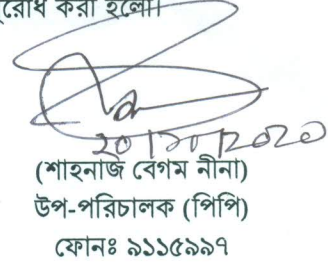 রোধ করা হলো।
২০/১০/২০২০
(শাহনাজ বেগম নীনা)
উপ-পরিচালক (পিপি)
ফোনঃ ৯১১৫৯৯৭